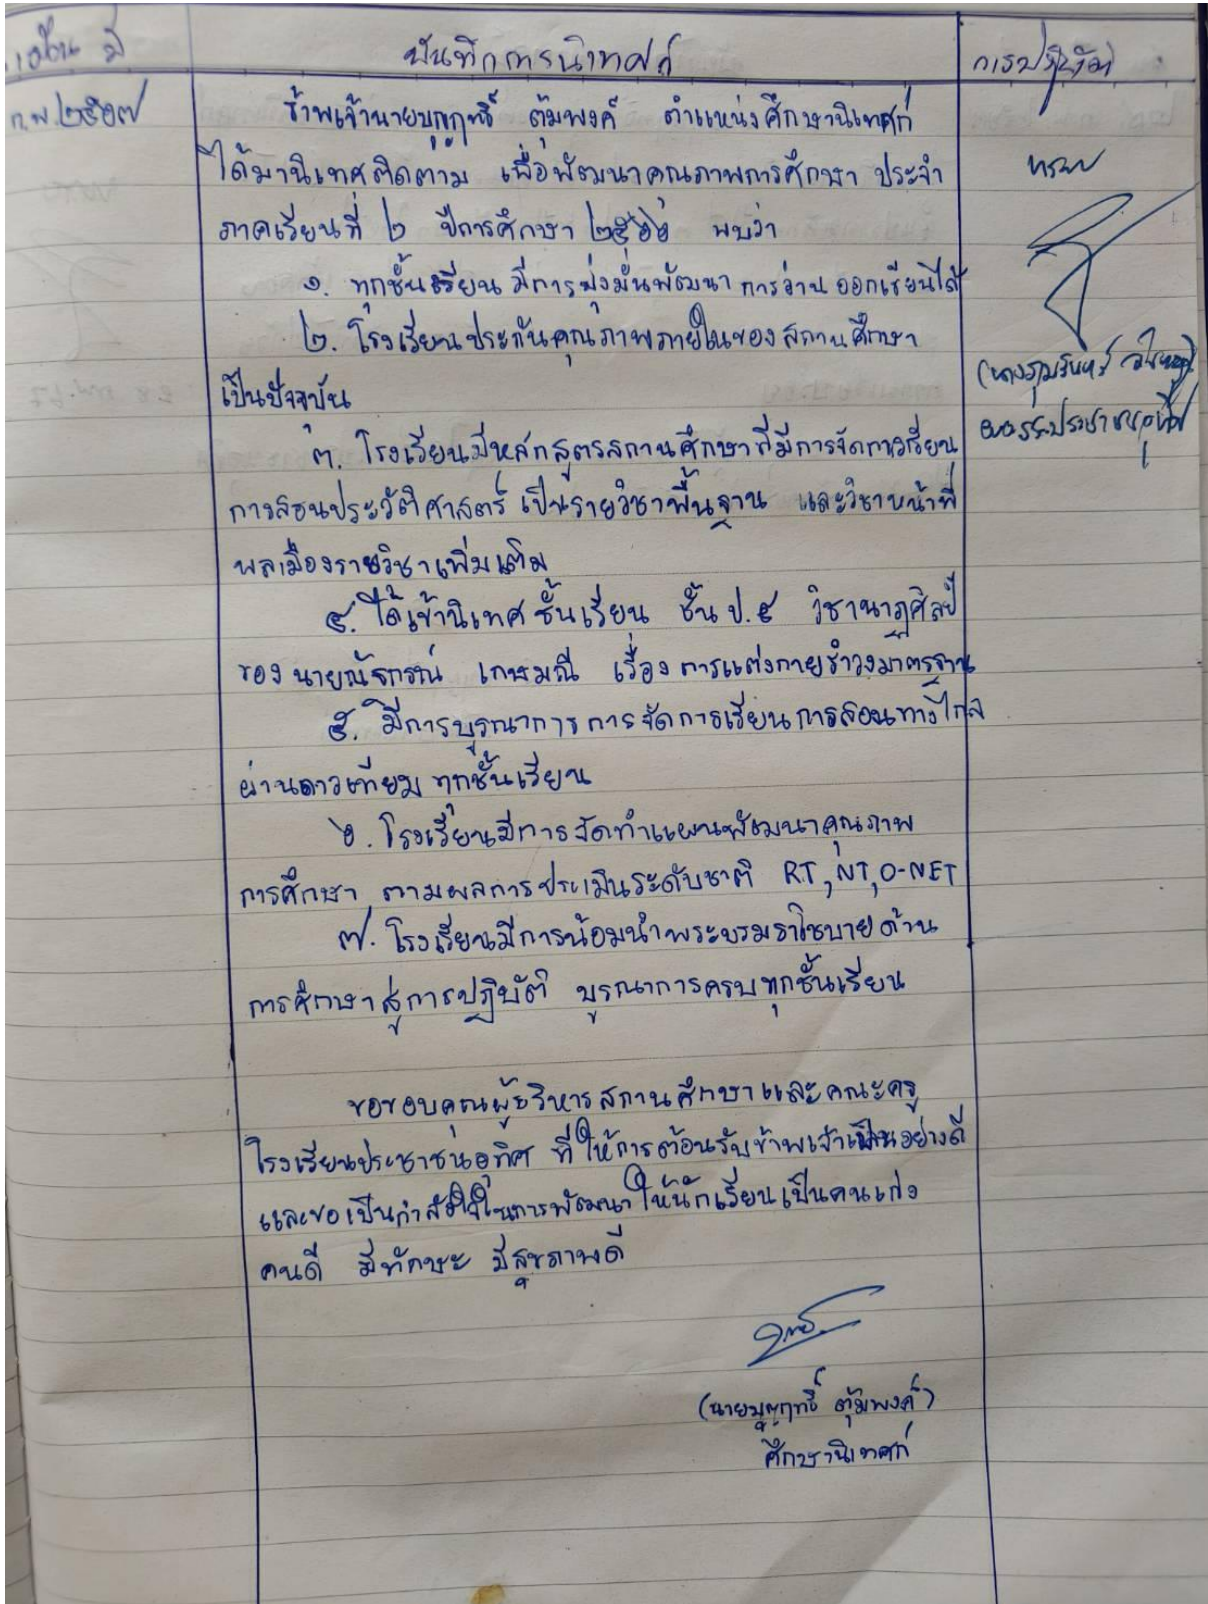 เดือน ปี
บันทึกการนิเทศก์
การปฏิบัติ
ก.พ. ๒๕๖๗
ข้าพเจ้านายบุญฤทธิ์ ตุ้มพงค์ ตำแหน่งศึกษานิเทศก์
ได้มานิเทศติดตาม เพื่อพัฒนาคุณภาพการศึกษา ประจำ
ภาคเรียนที่ ๒ ปีการศึกษา ๒๕๖๖ พบว่า
๑. ทุกชั้นเรียน มีการมุ่งมั่นพัฒนา การอ่าน ออกเขียนได้
๒. โรงเรียนประกันคุณภาพภายในของสถานศึกษา
เป็นปัจจุบัน
๓. โรงเรียนมีหลักสูตรสถานศึกษาที่มีการจัดการเรียน
การสอนประวัติศาสตร์ เป็นรายวิชาพื้นฐาน และวิชาหน้าที่
พลเมืองรายวิชาเพิ่มเติม
๔. ได้เข้านิเทศ ชั้นเรียน ชั้น ป.๕ วิชานาฏศิลป์
ของ นาย เกษมณี เรื่อง การแต่งกายรำวงมาตรฐาน
๕. มีการบูรณาการ การจัดการเรียนการสอนทางไกล
ผ่านดาวเทียม ทุกชั้นเรียน
๖. โรงเรียนมีการจัดทำแผนพัฒนาคุณภาพ
การศึกษา ตามผลการประเมินระดับชาติ RT, NT, O-NET
๗. โรงเรียนมีการน้อมนำพระบรมราโชบายด้าน
การศึกษาสู่การปฏิบัติ บูรณาการครบทุกชั้นเรียน
ขอขอบคุณผู้บริหารสถานศึกษาและคณะครู
โรงเรียนประชาชนอุทิศ ที่ให้การต้อนรับข้าพเจ้าเป็นอย่างดี
และขอเป็นกำลังใจในการพัฒนาให้นักเรียนเป็นคนเก่ง
คนดี มีทักษะ มีสุขภาพดี
(นายบุญฤทธิ์ ตุ้มพงค์)
ศึกษานิเทศก์
ทราบ
ผอ.รร.ประชาชนอุทิศ